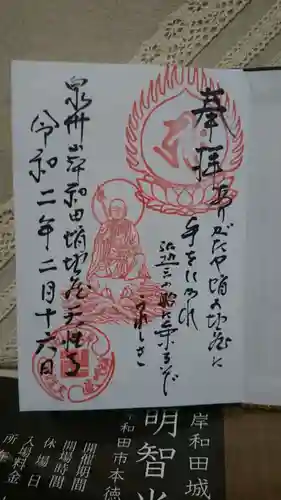 奉拝
ありがたや蛸の地蔵に
手をいるれ
法近三の船に乗るぞ
うれしき
泉州岸和田蛸地蔵天性寺
令和二年二月十六日
岸和田城
明智光
岸和田市本徳
開催期間
開場時間
休場日
入場料金
所